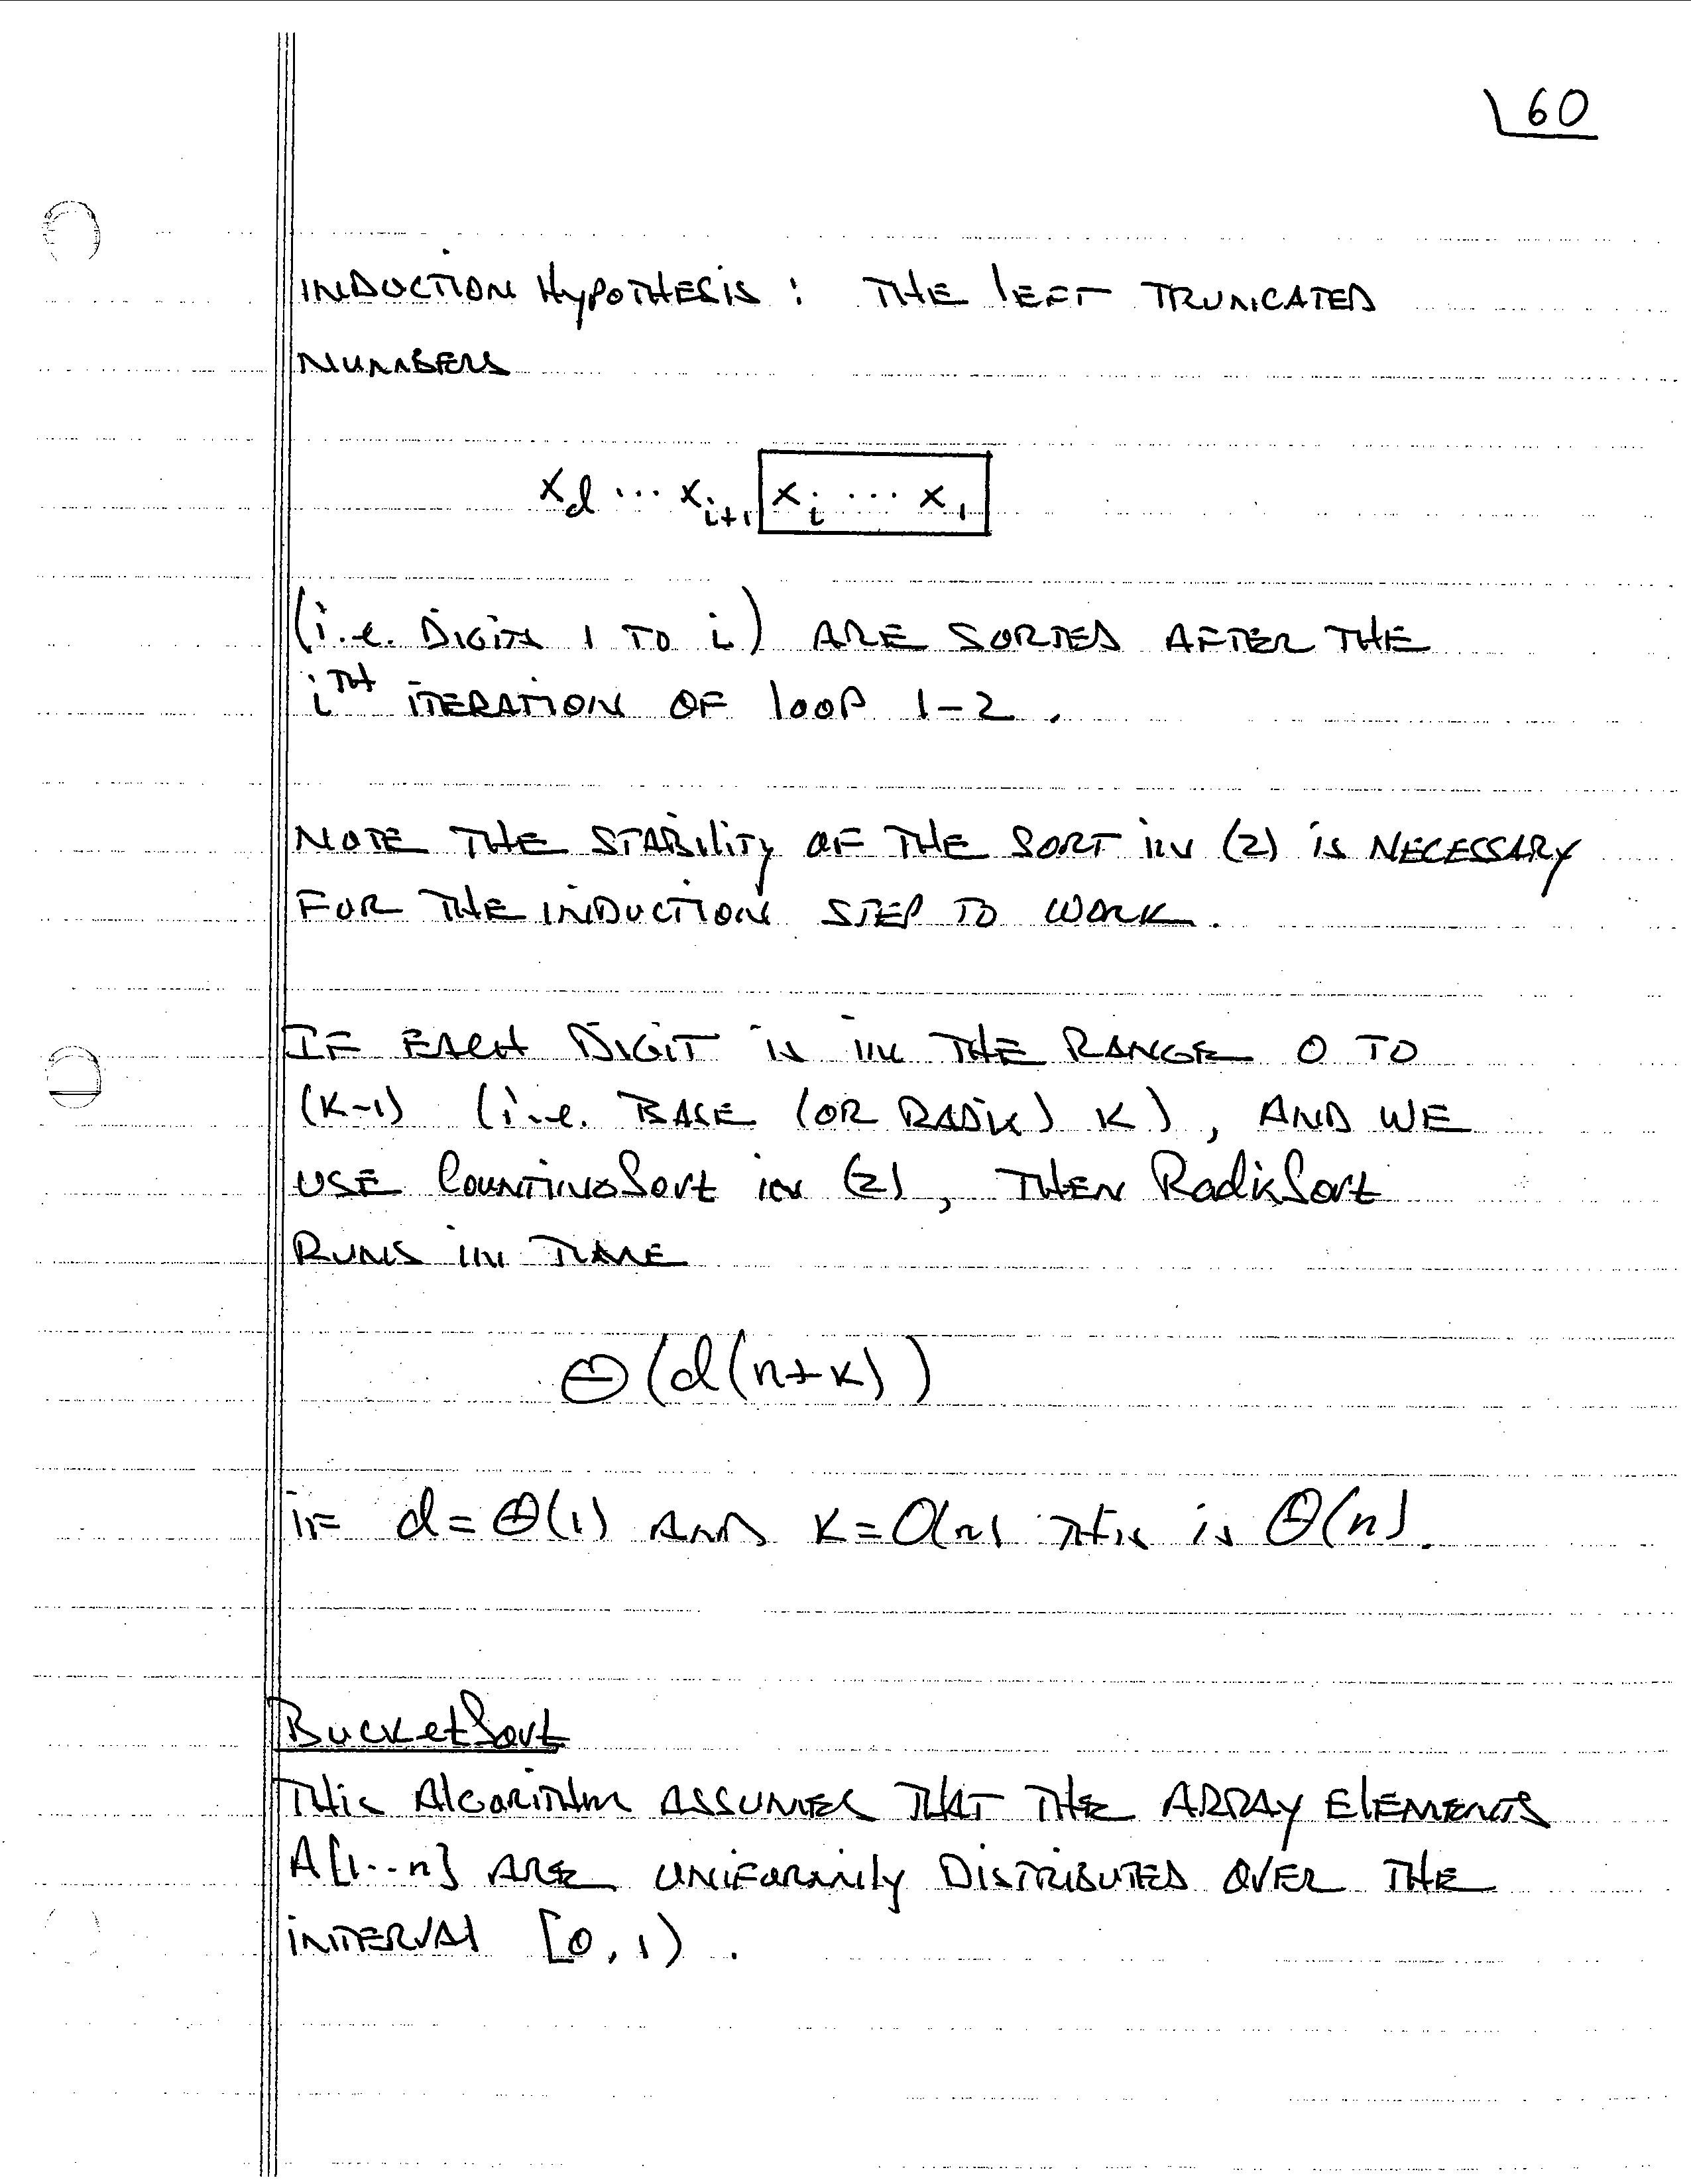 60
INDUCTION HYPOTHESIS: THE LEFT TRUNCATED
NUMBERS
x_d ... x_{i+1} x_i ... x_1
(i.e. DIGITS 1 TO i) ARE SORTED AFTER THE
i^TH ITERATION OF LOOP 1-2.
NOTE THE STABILITY OF THE SORT IN (2) IS NECESSARY
FOR THE INDUCTION STEP TO WORK.
IF EACH DIGIT IS IN THE RANGE 0 TO
(K-1) (i.e. BASE (OR RADIX) K), AND WE
USE CountingSort IN (2), THEN RadixSort
RUNS IN TIME
Θ(d(n+K))
IF d=Θ(1) AND K=O(n) THIS IS Θ(n).
BucketSort
THIS ALGORITHM ASSUMES THAT THE ARRAY ELEMENTS
A[1..n] ARE UNIFORMLY DISTRIBUTED OVER THE
INTERVAL [0,1).